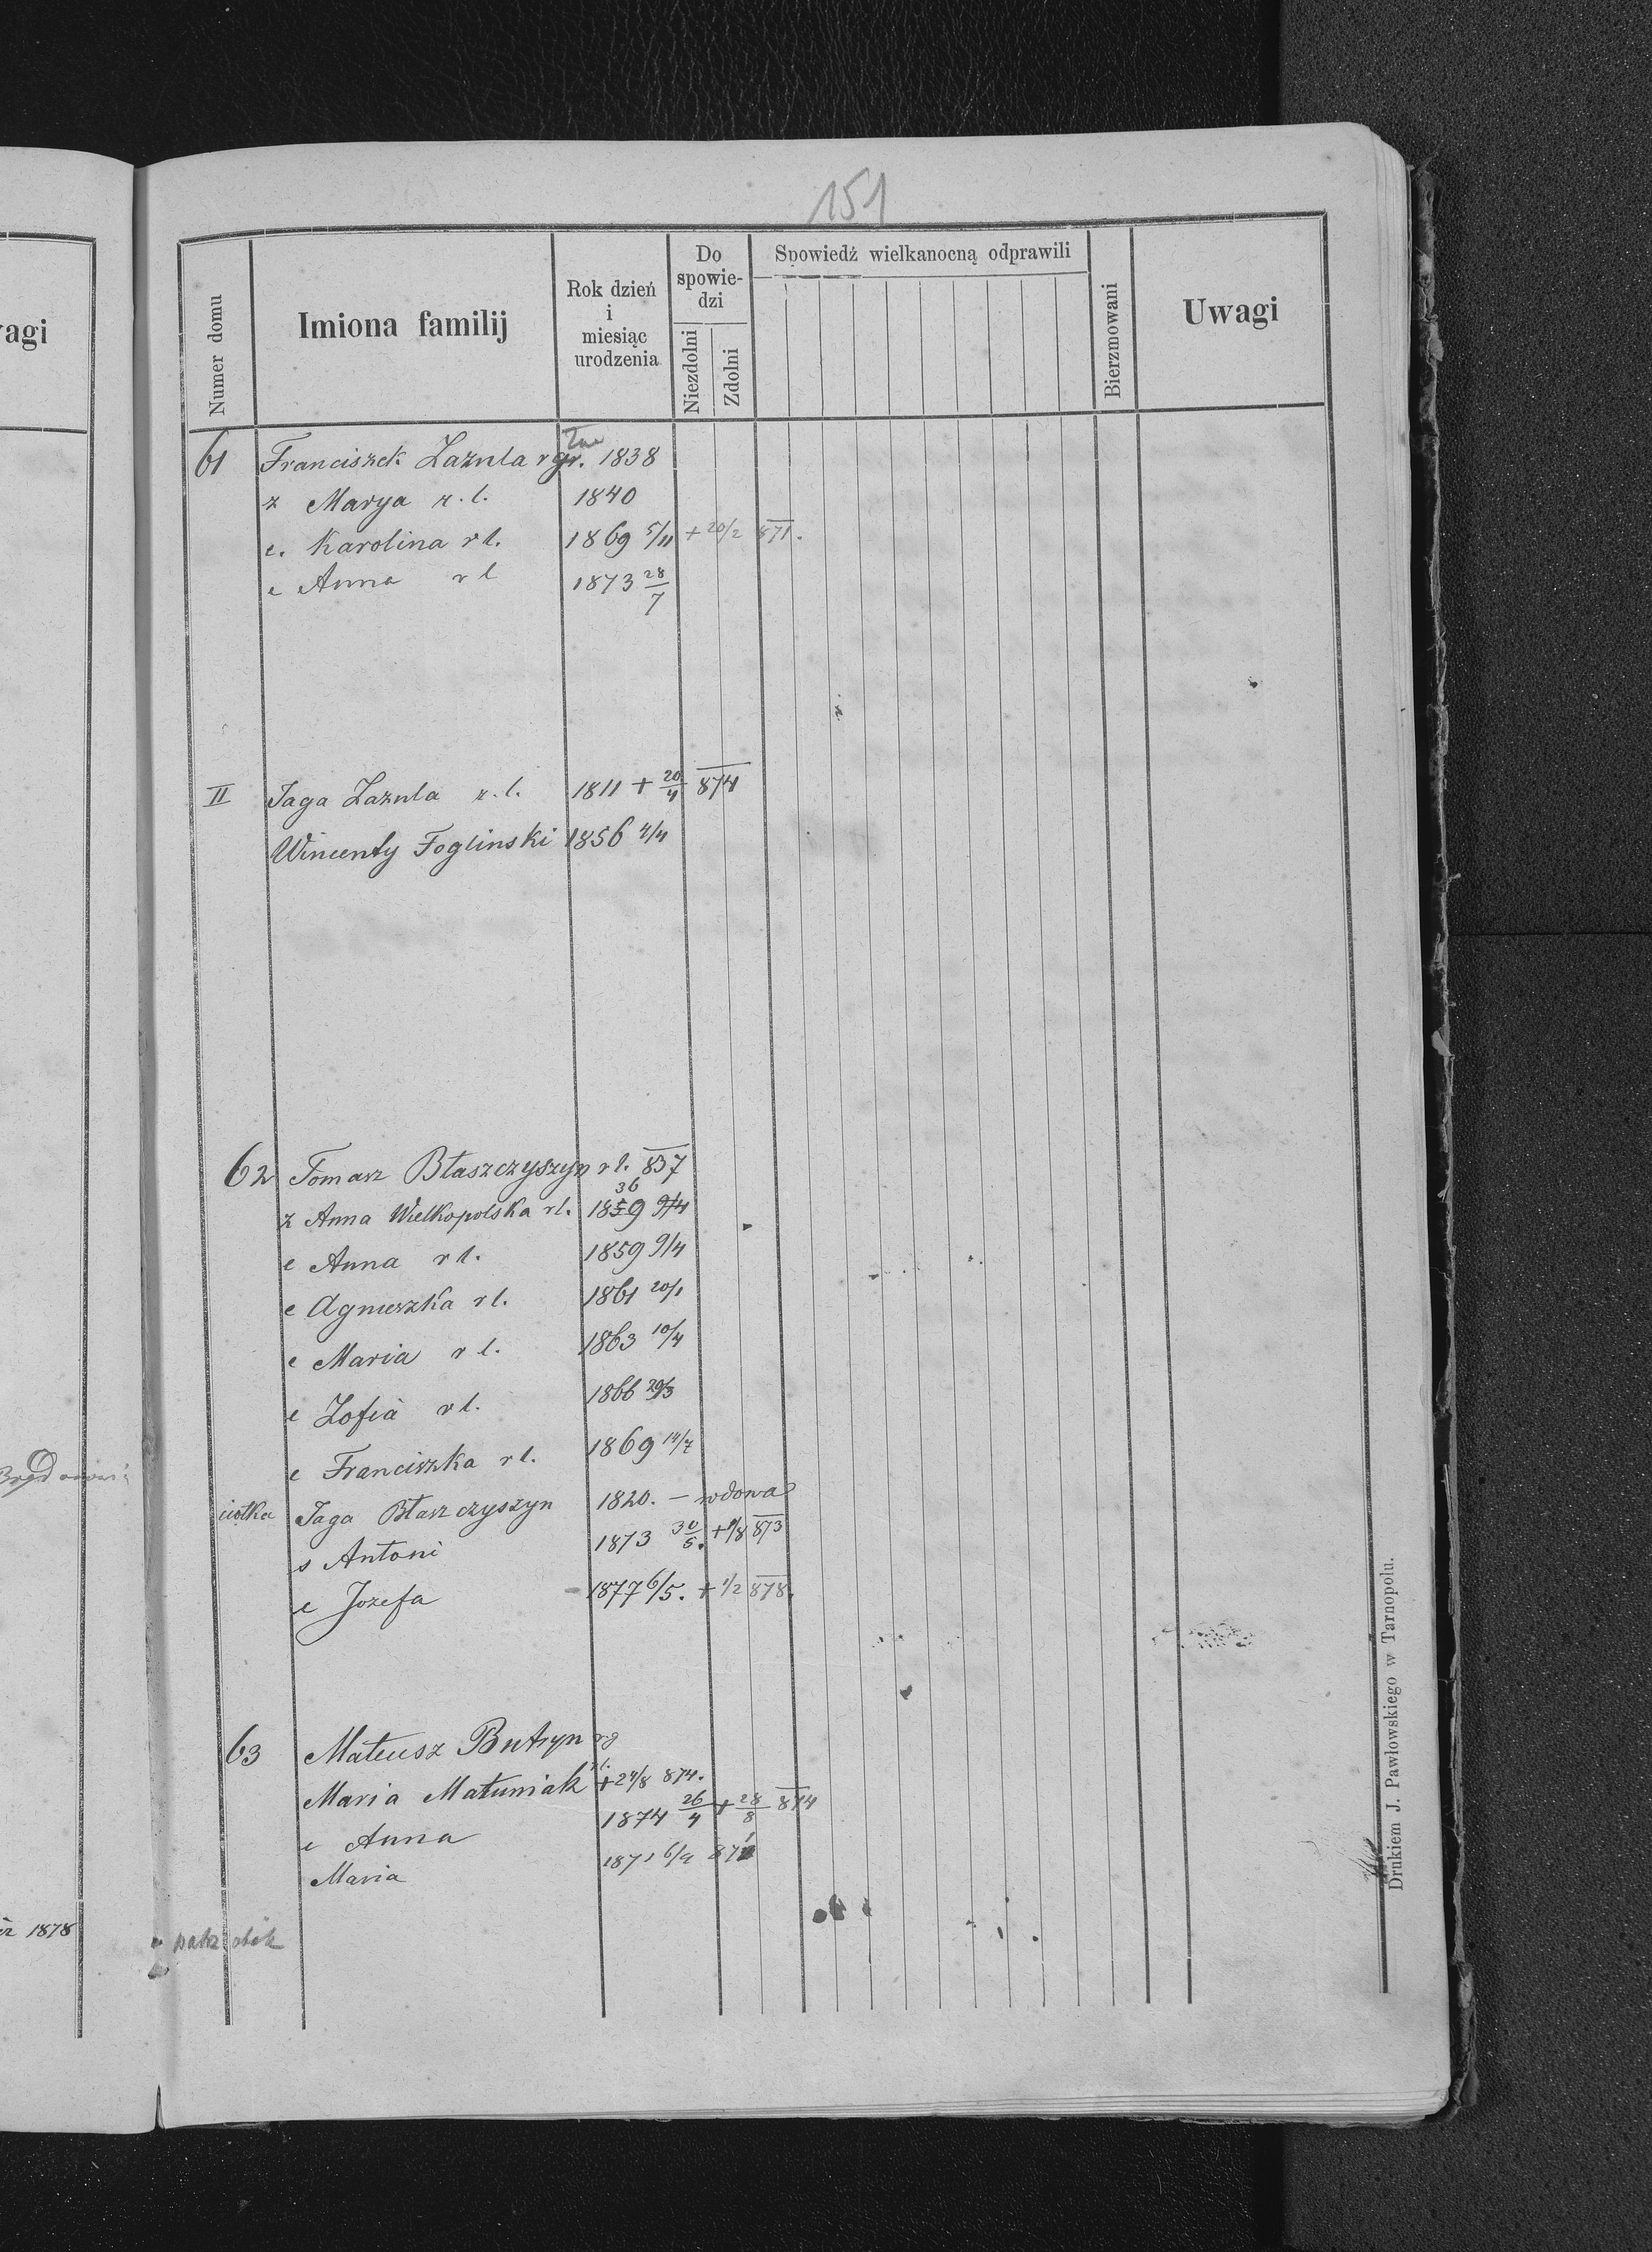 151
Numer domu
Imiona familij
Rok dzień i miesiąc urodzenia
Do spowiedzi
Niezdolni
Zdolni
Spowiedź wielkanocną odprawili
Bierzmowani
Uwagi
agi
61 Franciszek Zazula r gr. 1838
ż Marya r. l. 1840
c. Karolina r l. 1869 5/11 + 20/2 871.
c Anna r l 1873 28/7
II Jaga Zazula r. l. 1811 + 20/4 874
Wincenty Foglinski 1856 4/4
62 Tomasz Błaszczyszyn r l. 837
36
ż Anna Wielkopolska r l. 1859 9/4
c Anna r l. 1859 9/4
c Agnieszka r l. 1861 20/1
c Maria r l. 1863 10/4
c Zofia r l. 1866 20/3
c Franciszka r l. 1869 14/7
ciotka Jaga Błaszczyszyn 1820. – wdowa
s Antoni 1873 30/5. + 9/8 873
c Jozefa 1877 6/5. + 1/2 878.
63 Mateusz Butryn rg
Maria Matuniak r l. + 24/8 874.
c Anna 1874 26/4 + 28/8 874
Maria 1871 6/9 871
1878
Drukiem J. Pawłowskiego w Tarnopolu.